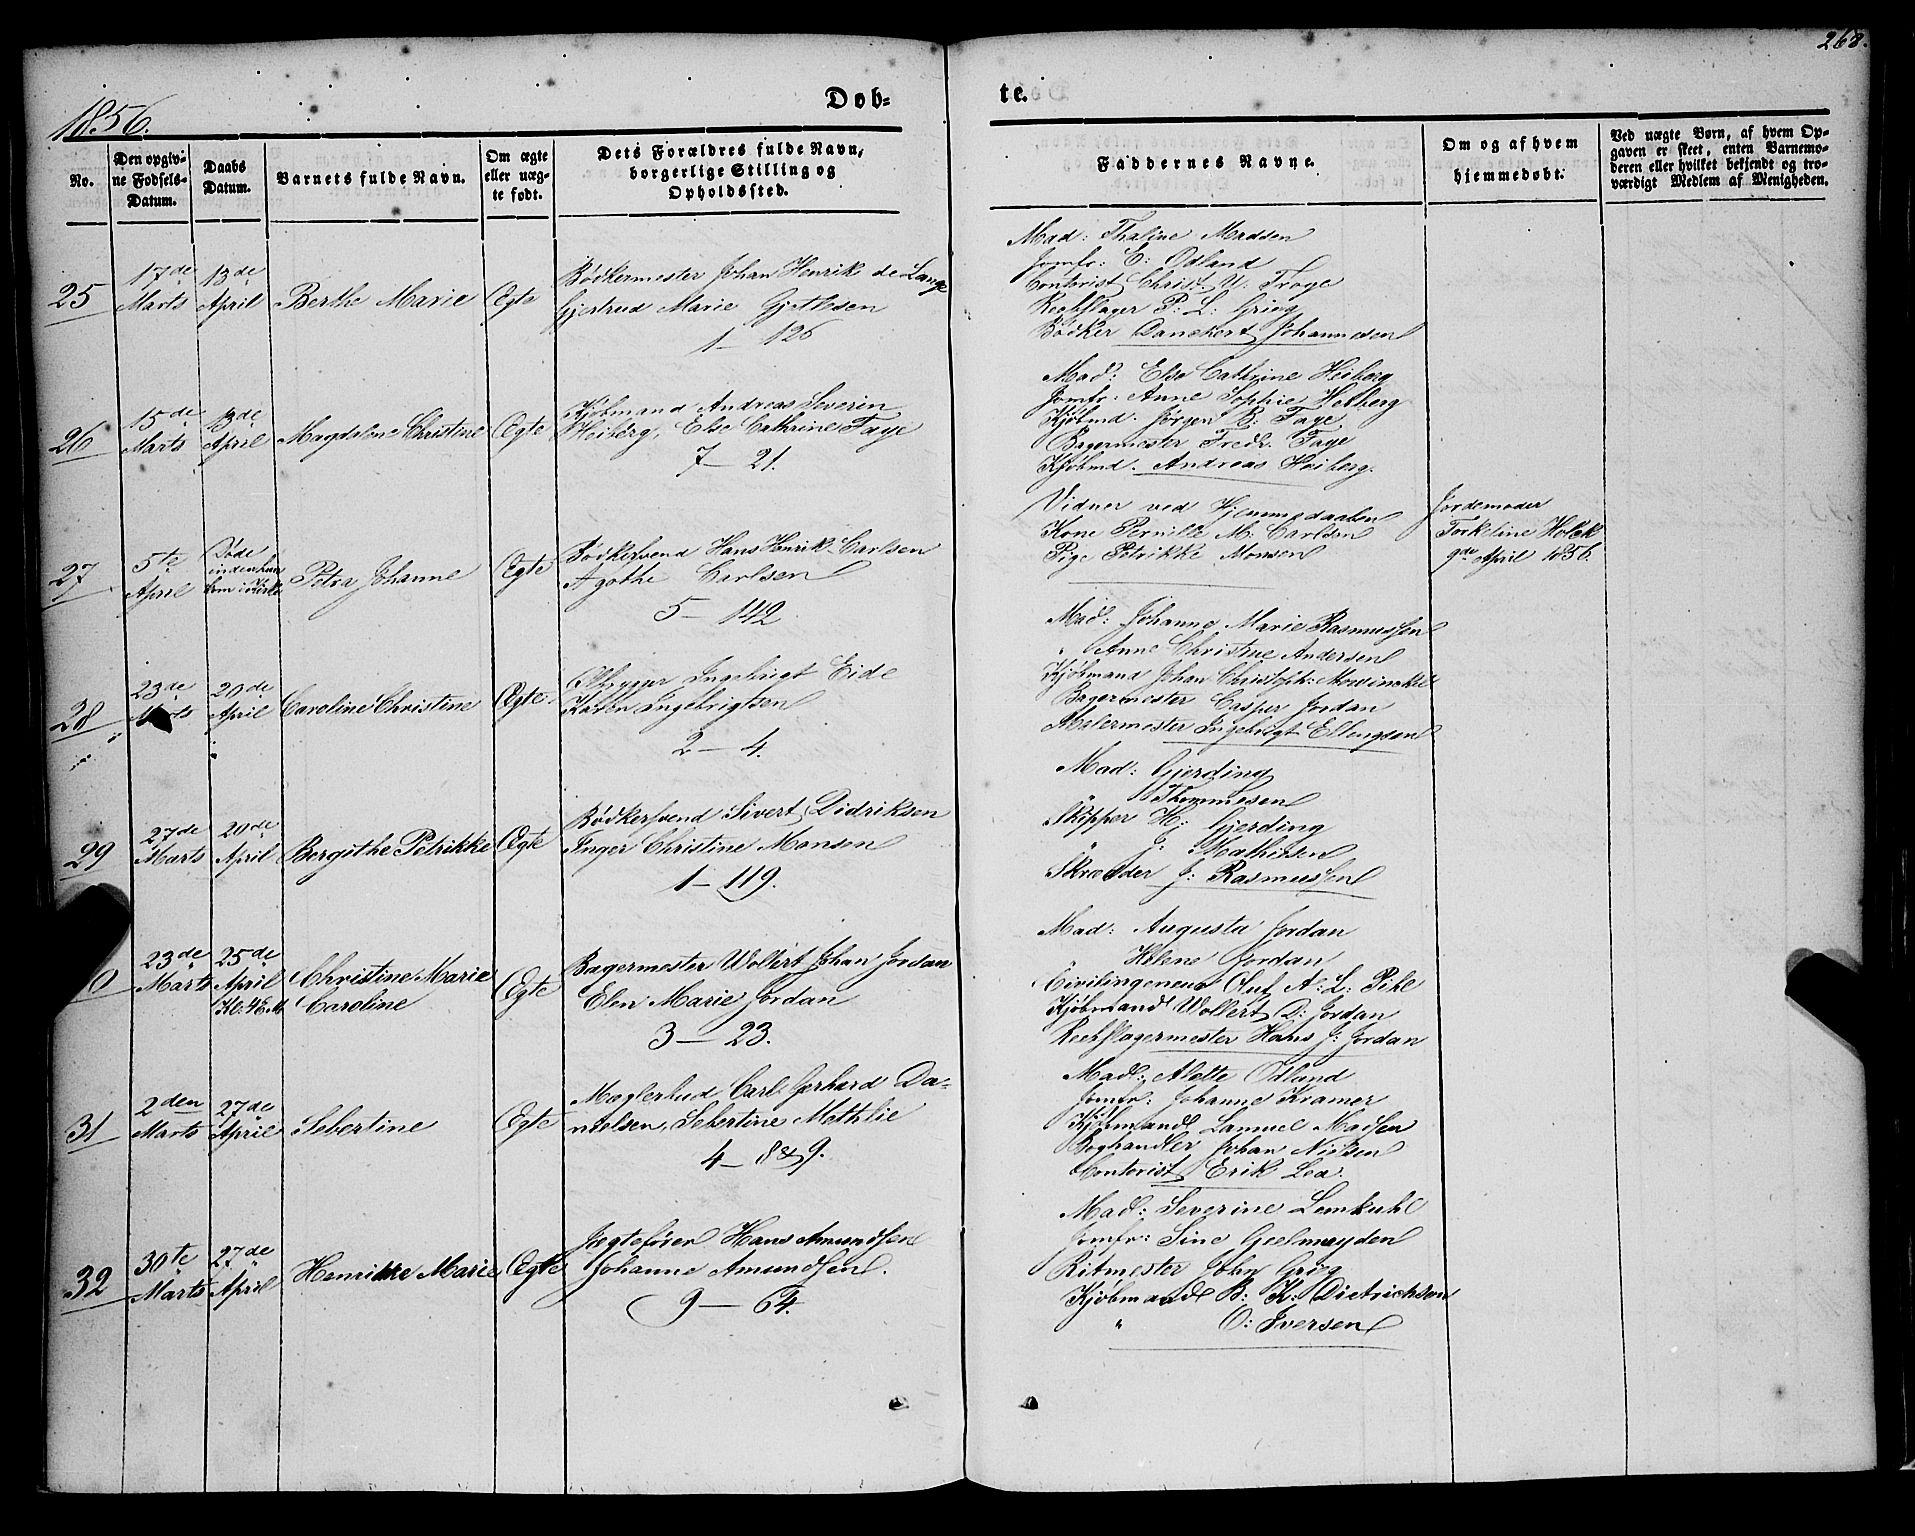 268.
1856.
Døb-
te.
No.
Den opgiv-
ne Fødsels-
Datum.
Daabs
Datum.
Barnets fulde Navn.
Om ægte
eller uæg-
te født.
Dets Forældres fulde Navn,
borgerlige Stilling og
Opholdssted.
Faddernes Navne.
Om og af hvem
hjemmedøbt.
Ved uægte Børn, af hvem Op-
gaven er skeet, enten Barnemo-
deren eller hvilket bekjendt og tro-
værdigt Medlem af Menigheden.
25
17de
Marts
13de
April
Berthe Marie
Ægte
Bødkermester Johan Henrik de Lange
Gjertrud Marie Gjertsen
1 – 126
Mad: Thaline Madsen
Jomfr: E: Odland
Contorist Christ. U. Troye
Reebslager P: L: Grieg
Bødker Danckert Johannesen
26
15de
Marts
13de
April
Magdalene Christine
Ægte
Kjøbmand Andreas Severin
Heiberg, Else Cathrine Faye
7 – 21.
Mad: Else Cathrine Heiberg
Jomfr. Anne Sophie Heiberg
Kjøbmd. Jørgen B: Faye
Bagermester Fredr. Faye
Kjøbmd. Andreas Heiberg.
27
5te
April
Døde
inden hun
kom i Kirke
Petra Johanne
Ægte
Bødkersvend Hans Henrik Carlsen
Agathe Carlsen
5 – 142
Vidner ved Hjemmedaaben
Kone Pernille M. Carlsen
Pige Petrikke Monsen
Jordemoder
Torkeline Holck
9de April 1856.
28
23de
Marts
20de
April
Caroline Christine
Ægte
Ølbrygger Ingebrigt Eide
Karen Ingebrigtsen
2 – 4.
Mad: Johanne Marie Rasmussen
" Anne Christine Andersen
Kjøbmand Johan Christoph: Mowinckel
Bagermester Casper Jordan
Malermester Ingebrigt Ellingsen
29
27de
Marts
20de
April
Bergithe Petrikke
Ægte
Bødkersvend Sivert Didriksen
Inger Christine Monsen
1 – 119.
Mad: Gjerding
" Thommesen
Skipper H: Gjerding
" J: Mathissen
Skrædder J: Rasmussen
0
23de
Marts
25de
April
Kl: 4 E.M.
Christine Marie
Caroline
Ægte
Bagermester Wollert Johan Jordan
Elen Marie Jordan
3 – 23.
Mad: Augusta Jordan
" Helene Jordan
Civilingeneur Oluf A: L: Pihl
Kjøbmand Wollert D: Jordan
Reebslagermester Hans J: Jordan
31
2den
Marts
27de
April
Sebertine
Ægte
Mæglerbud Carl Gerhard Da-
nielsen, Sebertine Methlie
4 – 8 & 9.
Mad: Alette Odland
Jomfr: Johanne Kramer
Kjøbmand Samuel Madsen
Boghandler Johan Nielsen
Contorist Erik Lea.
32
30te
Marts
27de
April
Henrikke Marie
Ægte
Jægtefører Hans Amundsen
Johanne Amundsen.
9 – 64.
Mad: Severine Lemkuhl
Jomfr: Sine Geelmuyden
Ritmester John Grieg
Kjøbmand B: K: Dietrichson
" O: Iversen